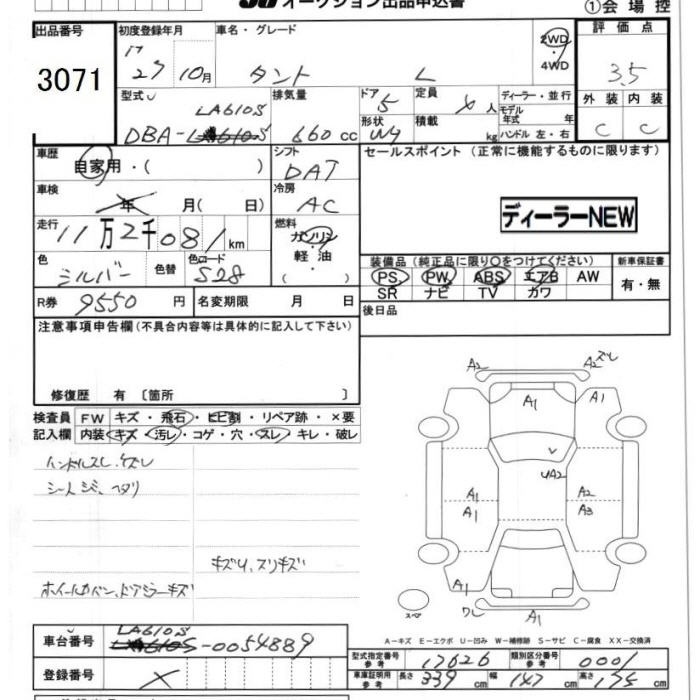 オークション出品申込書
①会場控
出品番号 初度登録年月 車名・グレード 評価点
3071 27 10月 タント L 2WD 4WD 3.5
型式 排気量 ドア 定員 ディーラー・並行 外装 内装
LA610S 5 X人 モデル年式 年
DBA- 660cc 形状 積載 kg ハンドル 左・右 C C
車歴 シフト セールスポイント (正常に機能するものに限ります)
自家用・( ) DAT
車検 冷房
年 月( 日) AC ディーラーNEW
走行 燃料
11万2千081km ガソリン
色 色替 色コード 軽油 装備品 (純正品に限り○をつけてください) 新車保証書
シルバー S28 ( ・ ) PS PW ABS エアB AW 有・無
SR ナビ TV カワ
R券 9550円 名変期限 月 日 後日品
注意事項申告欄(不具合内容等は具体的に記入して下さい)
修復歴 有 〔箇所 〕
検査員 FW キズ・飛石・ヒビ割・リペア跡・×要
記入欄 内装 キズ・汚レ・コゲ・穴・スレ・キレ・破レ
ハンドルスレ、ケズレ
シートシミ、ヘタリ
キズU、スリキズ
ホイールカバー、ドアミラーキズ
A2 A2ズレ
A1 A1
UA2
A1 A2
A1 A3
A1
ワレ A1
スペア
A-キズ E-エクボ U-凹み W-補修跡 S-サビ C-腐食 XX-交換済
車台番号 LA610S -0054889
登録番号 X
型式指定番号 参考 17626 類別区分番号 参考 0001
車庫証明用 参考 長さ 339cm 幅 147cm 高さ 175cm